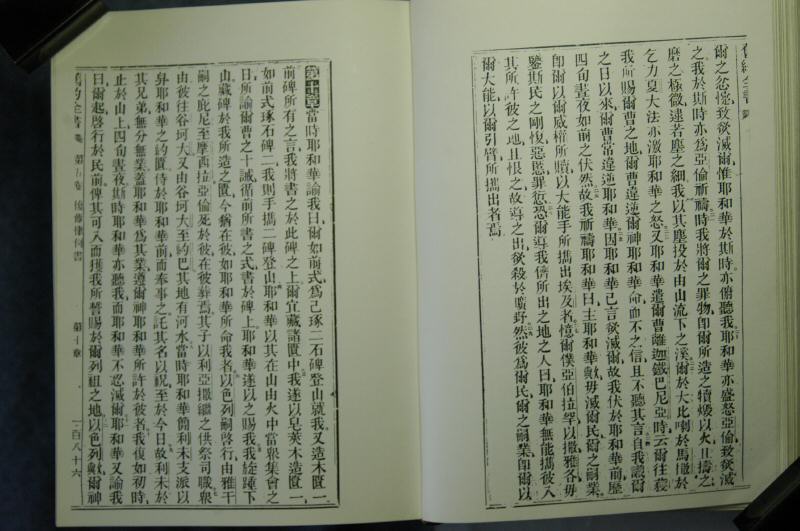 舊約全書
爾之忿懥致欲滅爾惟耶和華於斯時亦俯聽我耶和華亦盛怒亞倫致欲滅
之我於斯時亦爲亞倫祈禱時我將爾之罪物卽爾所造之犢燬以火且擣之
磨之極微遠若塵之細我以其塵投於由山流下之溪爾於大比喇於馬撒於
乞力夏大法亦激耶和華之怒又耶和華遣爾曹離迦鐵巴尼亞時云爾往獲
我所賜爾曹之地爾曹違逆爾神耶和華命而不之信且不聽其言自我識爾
之日以來爾曹常違逆耶和華因耶和華已言欲滅爾故我伏於耶和華前歷
四旬晝夜如前之伏然故我祈禱耶和華曰主耶和華歟毋滅爾民爾之嗣業
卽爾以爾威權所贖以大能手所攜出埃及者憶爾僕亞伯拉罕以撒雅各毋
鑒斯民之剛愎惡慝罪愆恐爾導我儕所出之地之人曰耶和華無能攜彼入
其所許彼之地且恨之故導之出欲殺於曠野然彼爲爾民爾之嗣業卽爾以
爾大能以爾引臂所攜出者焉
第十章當時耶和華諭我曰爾如前式爲己琢二石碑登山就我又造木匱一
前碑所有之言我將書之於此碑之上爾宜藏諸匱中我遂以呈莢木造匱一
如前式琢石碑二我則手攜二碑登山耶和華以其在山由火中當衆集會之
日所諭爾曹之十誡循前所書之式書於碑上耶和華遂以之賜我我旋踵下
山藏碑於我所造之匱今猶在彼如耶和華所命我者以色列嗣啓行由雅干
嗣之庇尼至摩西拉亞倫死於彼在彼葬焉其子以利亞撒繼之供祭司職衆
由彼往谷坷大又由谷坷大至約巴其地有河水當時耶和華簡利未支派以
舁耶和華之約匱侍於耶和華前而奉事之託其名以祝至於今日故利未於
其兄弟無分無業蓋耶和華爲其業遵爾神耶和華所許於彼者我復如初時
止於山上四旬晝夜斯時耶和華亦聽我而耶和華不忍滅爾耶和華又諭我
曰爾起啓行於民前俾其可入而獲我所誓賜於爾列祖之地以色列歟爾神
舊約全書 第五卷 復傳律例書 第十章 一百八十六